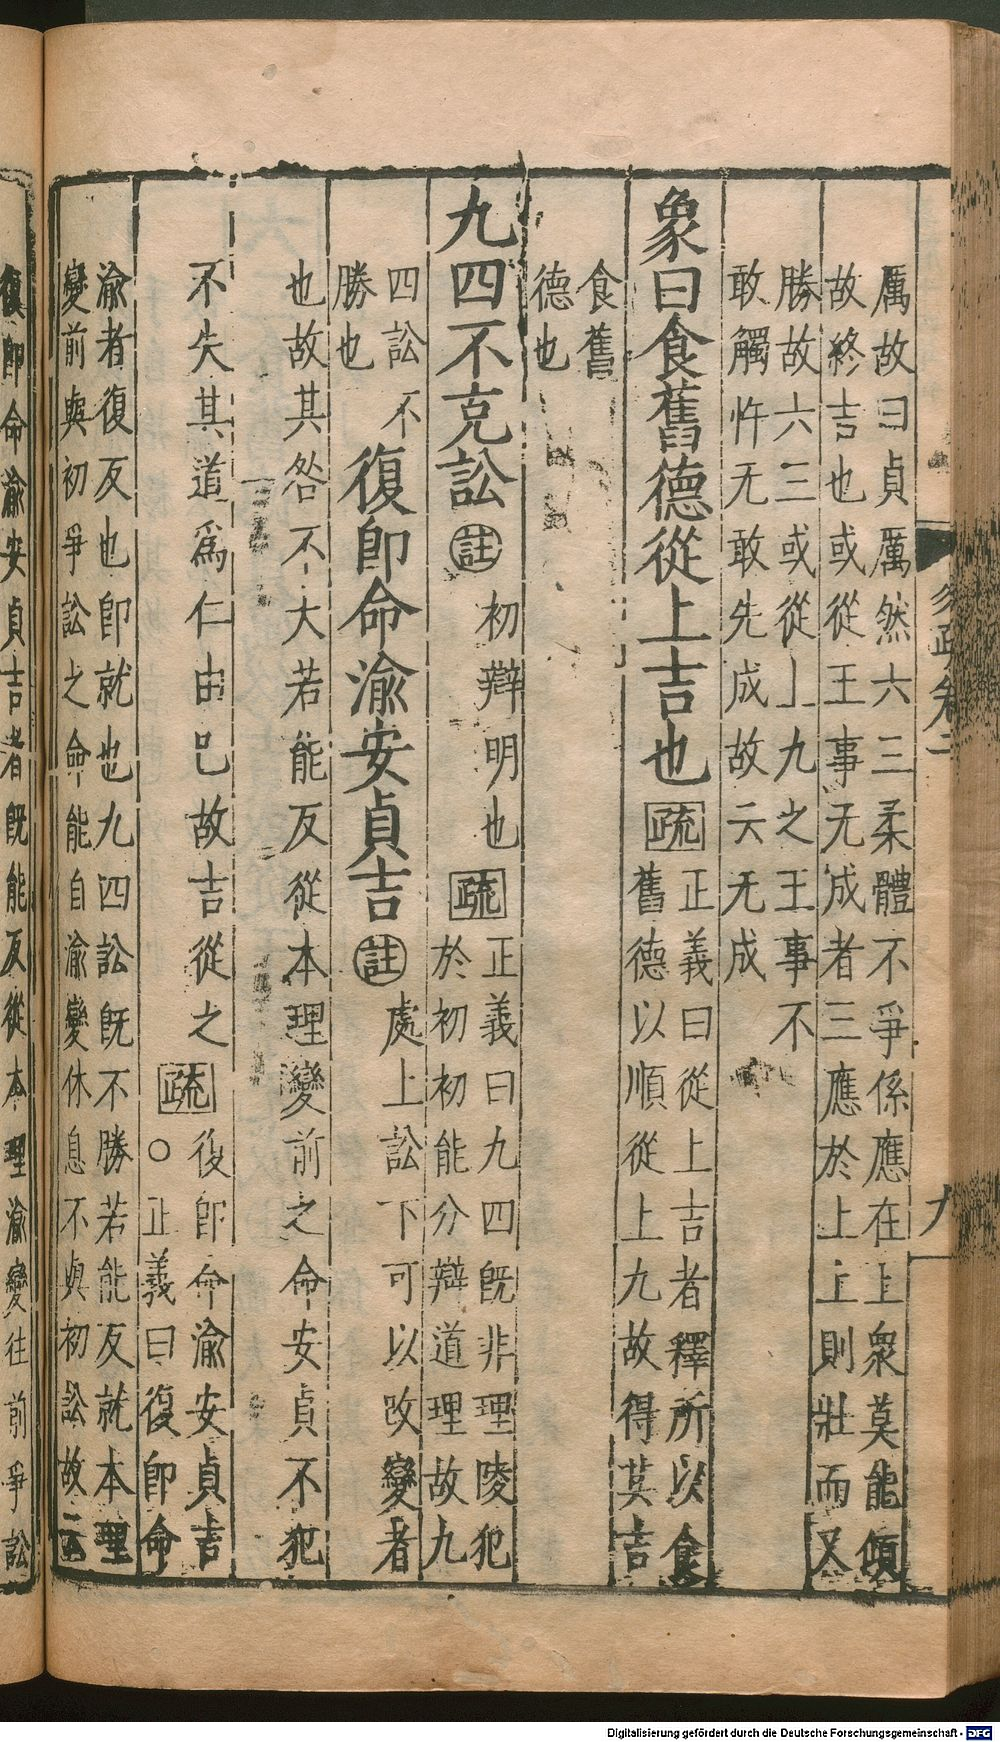 厲故曰貞厲然六三柔體不爭係應在上衆莫能傾
故終吉也或從王事无成者三應於上上則壯而又
勝故六三或從上九之王事不
敢觸忤无敢先成故云无成
象曰食舊德從上吉也疏
正義曰從上吉者釋所以食
舊德以順從上九故得其吉
食舊
德也
九四不克訟註
初辯明也疏
正義曰九四旣非理陵犯
於初初能分辯道理故九
四訟不
勝也
復卽命渝安貞吉註
處上訟下可以改變者
也故其咎不大若能反從本理變前之命安貞不犯
不失其道爲仁由己故吉從之疏
復卽命渝安貞吉
○正義曰復卽命
渝者復反也卽就也九四訟旣不勝若能反就本理
變前與初爭訟之命能自渝變休息不與初訟故云
復卽命渝安貞吉者旣能反從本理渝變往前爭訟
九
Digitalisierung gefördert durch die Deutsche Forschungsgemeinschaft - DFG